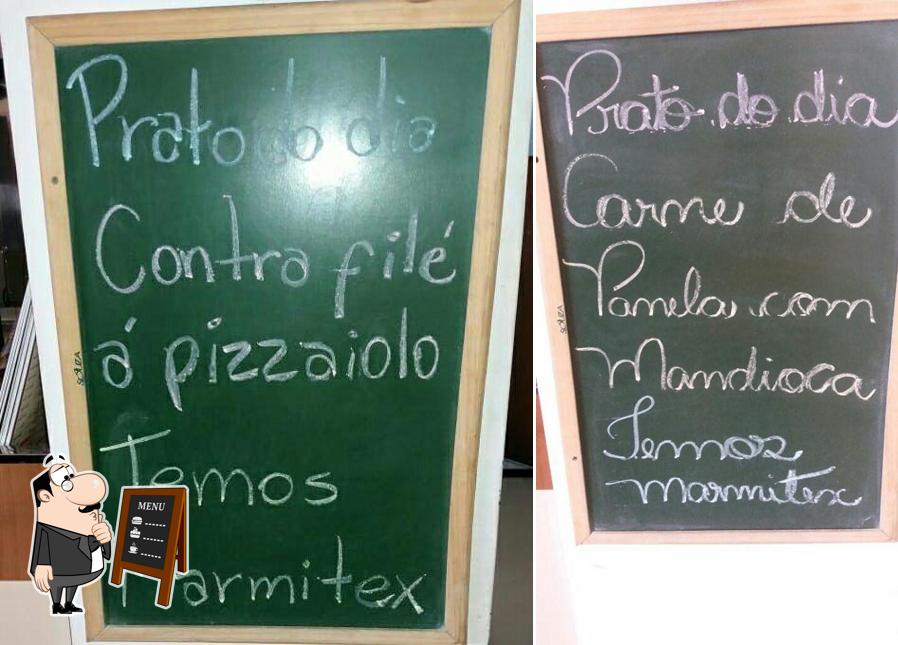 Prato do dia
Contra filé
á pizzaiolo
Temos
Marmitex
SOUZA
MENU
Prato do dia
Carne de
Panela com
Mandioca
Temos
marmitex
SOUZA